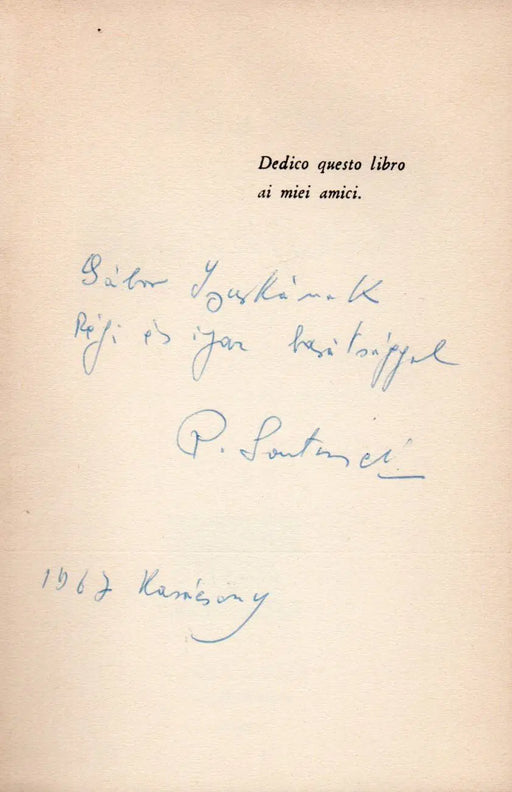 Dedico questo libro
ai miei amici.
Gábor
Régi és igaz barátsággal
P.
1967 Karácsony